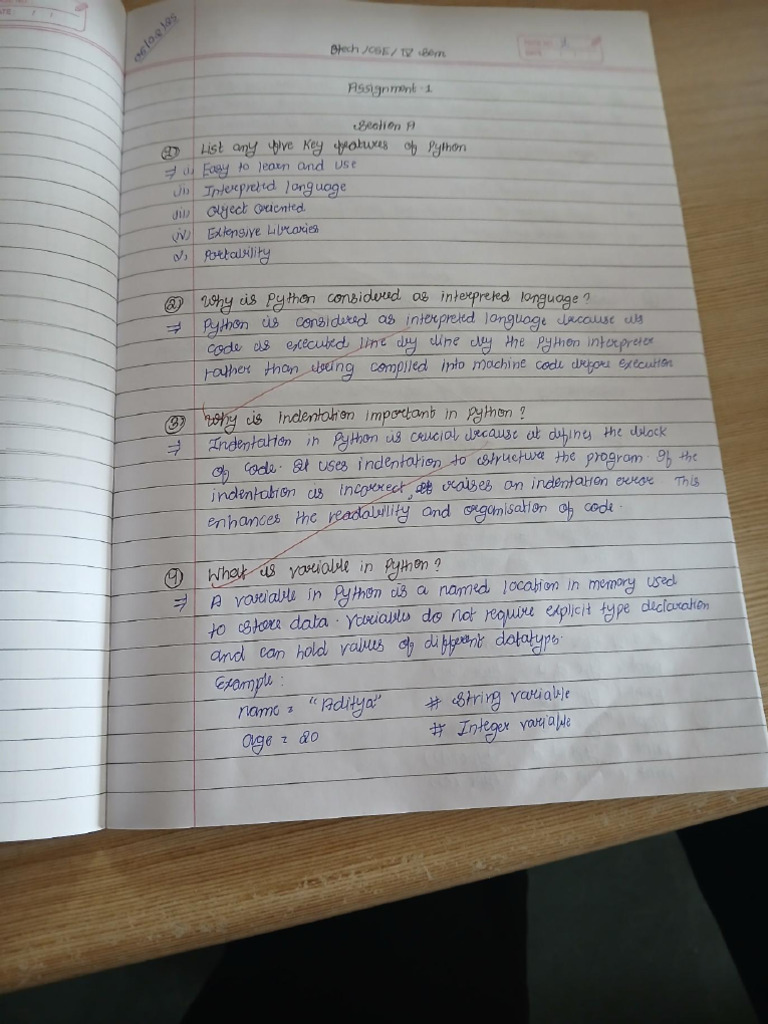 05/02/25
Btech/CSE/IV Sem
Assignment-1
Section A
① List any five key features of Python
⇒ i) Easy to learn and use
ii) Interpreted language
iii) Object Oriented
iv) Extensive Libraries
v) Portability
② Why is Python considered as interpreted language?
⇒ Python is considered as interpreted language because its
code is executed line by line by the Python interpreter
rather than being compiled into machine code before execution
③ Why is indentation important in Python?
⇒ Indentation in Python is crucial because it defines the block
of code. It uses indentation to structure the program. If the
indentation is incorrect, it raises an indentation error This
enhances the readability and organisation of code.
④ What is variable in Python?
⇒ A variable in Python is a named location in memory used
to store data. Variables do not require explicit type declaration
and can hold values of different datatypes.
Example:
name = "Aditya" # String variable
age = 20 # Integer variable